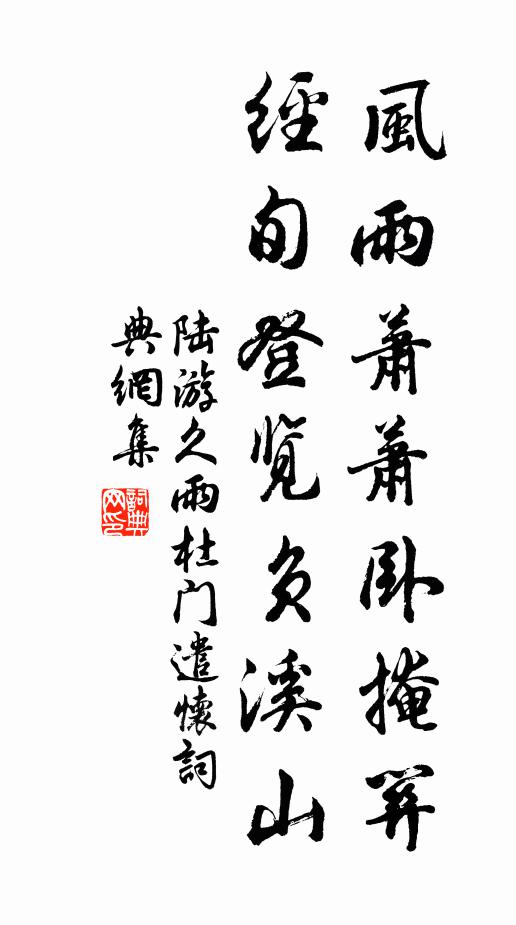 風雨蕭蕭卧掩關
經旬登覽負溪山
陆游久雨杜门遣懷詞
典網集
詞典网印